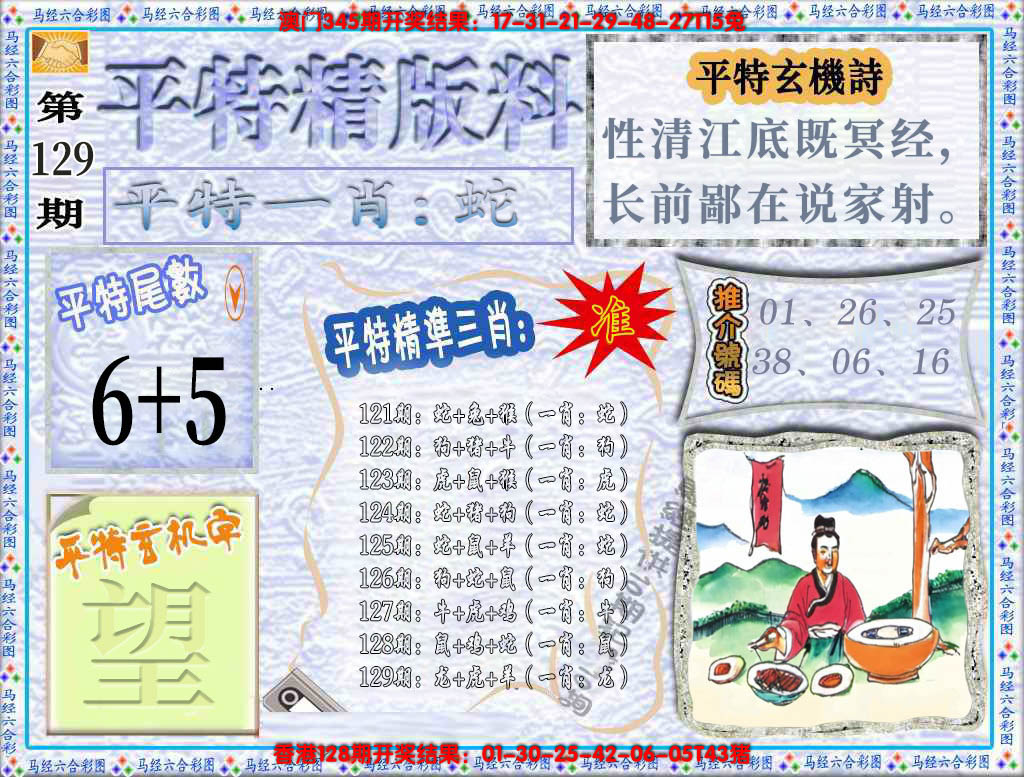 澳门345期开奖结果：17-31-21-29-48-27T15兔
马经六合彩图
第
129
期
平特精版料
平特一肖：蛇
平特玄機詩
性清江底既冥经，
长前鄙在说家射。
平特尾數
6+5
平特玄机字
望
平特精準三肖：
准
121期：蛇+兔+猴（一肖：蛇）
122期：狗+猪+牛（一肖：狗）
123期：虎+鼠+猴（一肖：虎）
124期：蛇+猪+狗（一肖：蛇）
125期：蛇+鼠+羊（一肖：蛇）
126期：狗+蛇+鼠（一肖：狗）
127期：牛+虎+鸡（一肖：牛）
128期：鼠+鸡+蛇（一肖：鼠）
129期：龙+虎+羊（一肖：龙）
推介號碼
01、26、25
38、06、16
香港128期开奖结果：01-30-25-42-06-05T43猪